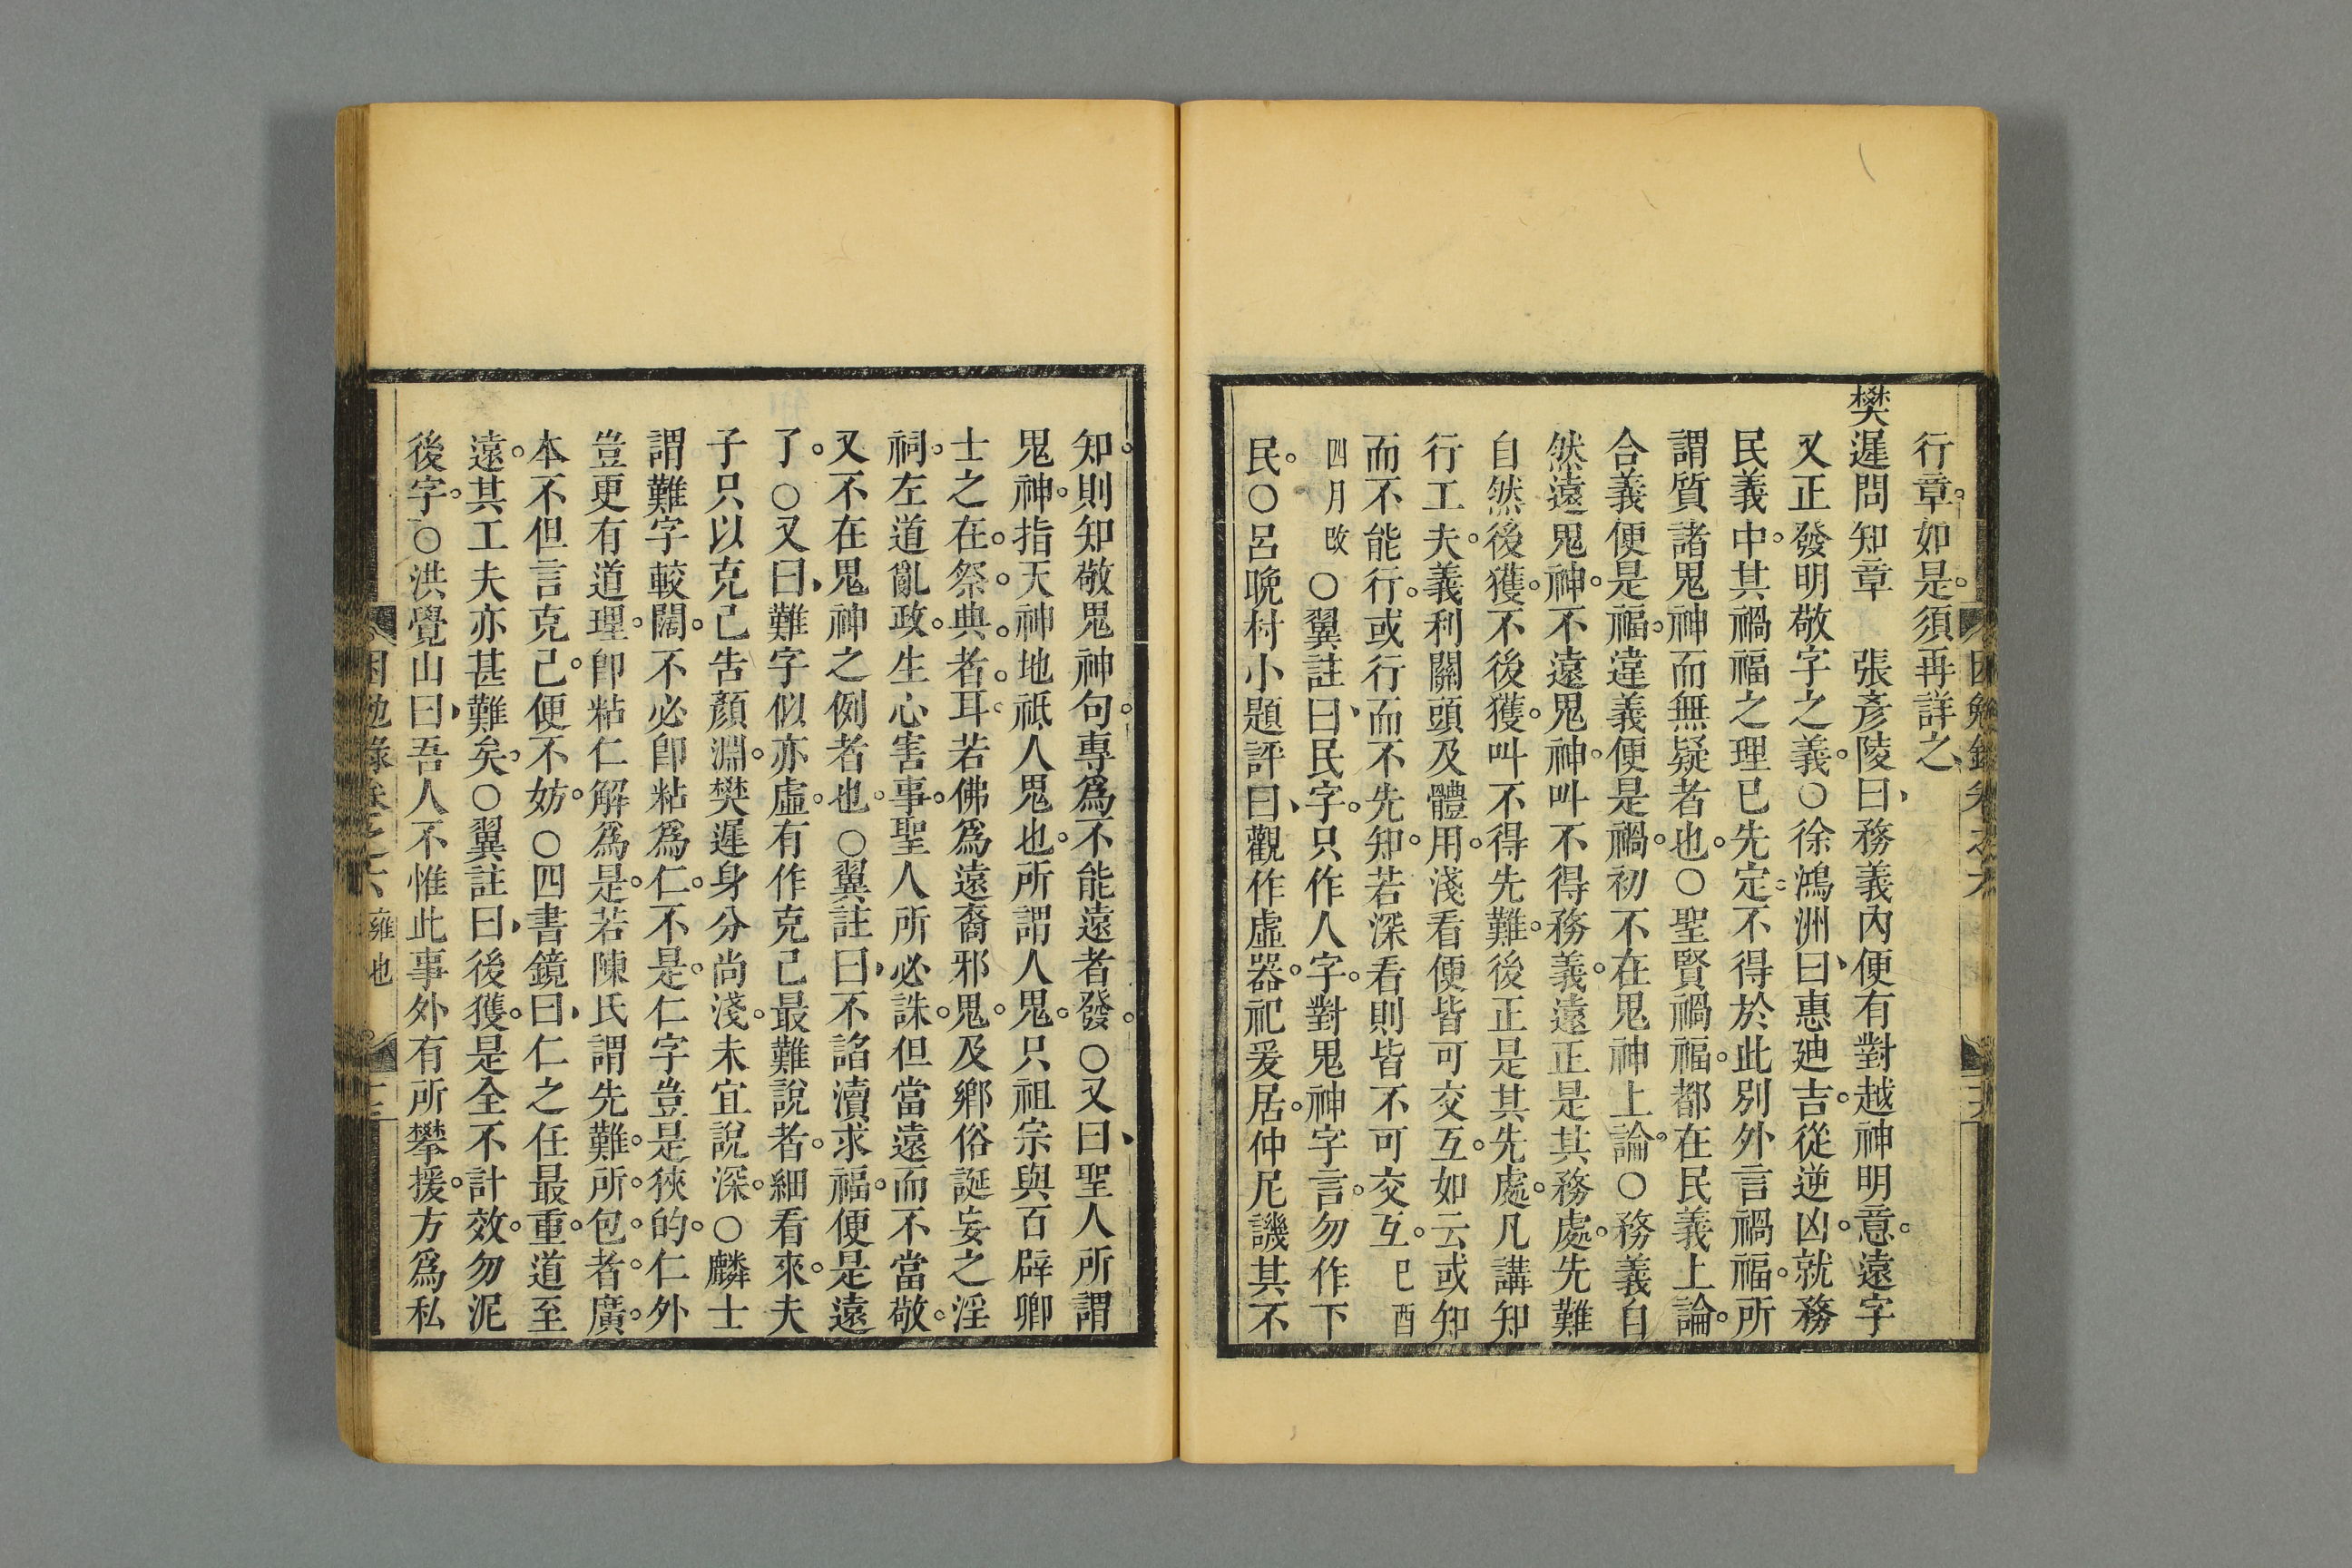 行章如是須再詳之
樊遲問知章　張彥陵曰務義內便有對越神明意遠字
又正發明敬字之義○徐鴻洲曰惠廸吉從逆凶就務
民義中其禍福之理已先定不得於此別外言禍福所
謂質諸鬼神而無疑者也○聖賢禍福都在民義上論
合義便是福違義便是禍初不在鬼神上論○務義自
然遠鬼神不遠鬼神叫不得務義遠正是其務處先難
自然後獲不後獲叫不得先難後正是其先處凡講知
行工夫義利關頭及體用淺看便皆可交互如云或知
而不能行或行而不先知若深看則皆不可交互已酉
四月改○翼註曰民字只作人字對鬼神字言勿作下
民○呂晚村小題評曰觀作虛器祀爰居仲尼譏其不
知則知敬鬼神句專爲不能遠者發○又曰聖人所謂
鬼神指天神地祇人鬼也所謂人鬼只祖宗與百辟卿
士之在祭典者耳若佛爲遠裔邪鬼及鄉俗誕妄之淫
祠左道亂政生心害事聖人所必誅但當遠而不當敬
又不在鬼神之例者也○翼註曰不諂瀆求福便是遠
了○又曰難字似亦虛有作克己最難說者細看來夫
子只以克己告顏淵樊遲身分尚淺未宜說深○麟士
謂難字較闊不必卽粘爲仁不是仁字豈是狹的仁外
豈更有道理卽粘仁解爲是若陳氏謂先難所包者廣
本不但言克己便不妨○四書鏡曰仁之任最重道至
遠其工夫亦甚難矣○翼註曰後獲是全不計效勿泥
後字○洪覺山曰吾人不惟此事外有所攀援方爲私
困勉錄卷之六　雍也